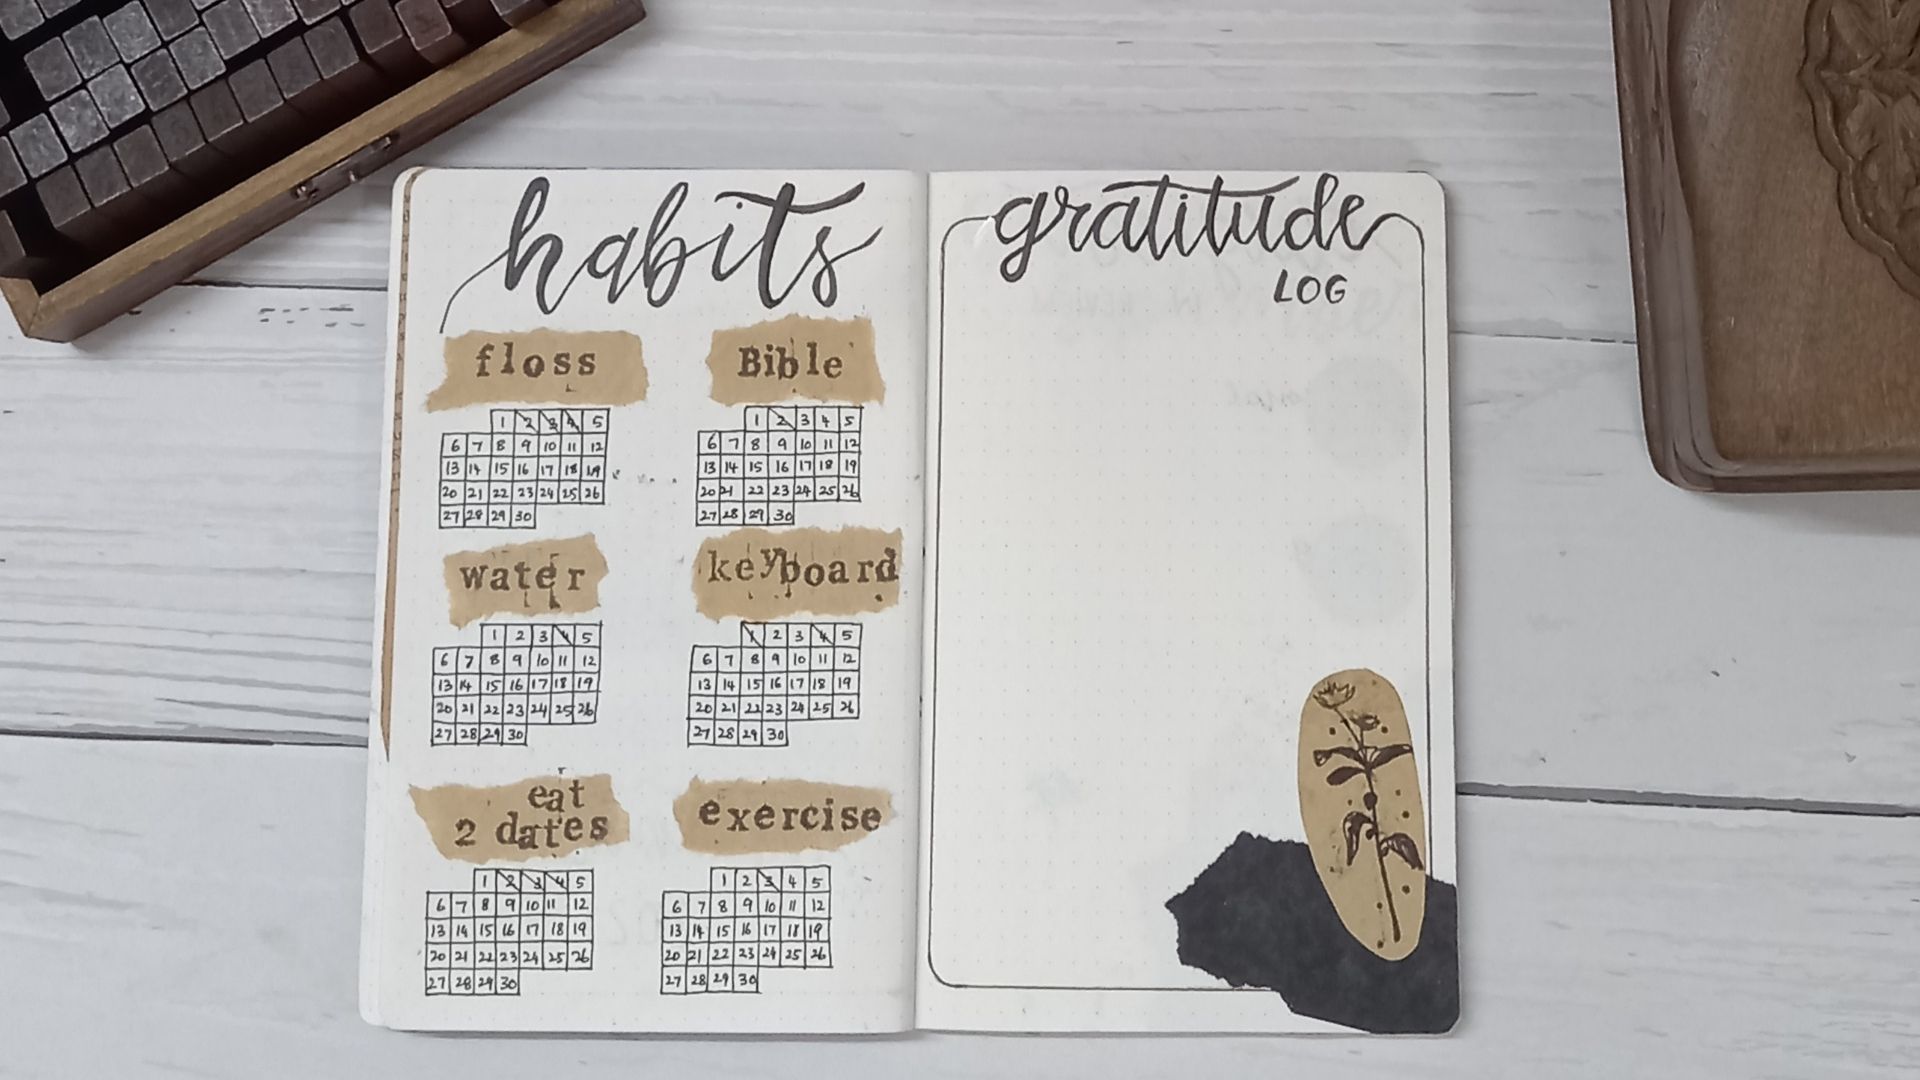 habits
floss
1 2 3 4 5
6 7 8 9 10 11 12
13 14 15 16 17 18 19
20 21 22 23 24 25 26
27 28 29 30
Bible
1 2 3 4 5
6 7 8 9 10 11 12
13 14 15 16 17 18 19
20 21 22 23 24 25 26
27 28 29 30
water
1 2 3 4 5
6 7 8 9 10 11 12
13 14 15 16 17 18 19
20 21 22 23 24 25 26
27 28 29 30
keyboard
1 2 3 4 5
6 7 8 9 10 11 12
13 14 15 16 17 18 19
20 21 22 23 24 25 26
27 28 29 30
eat
2 dates
1 2 3 4 5
6 7 8 9 10 11 12
13 14 15 16 17 18 19
20 21 22 23 24 25 26
27 28 29 30
exercise
1 2 3 4 5
6 7 8 9 10 11 12
13 14 15 16 17 18 19
20 21 22 23 24 25 26
27 28 29 30
gratitude
LOG